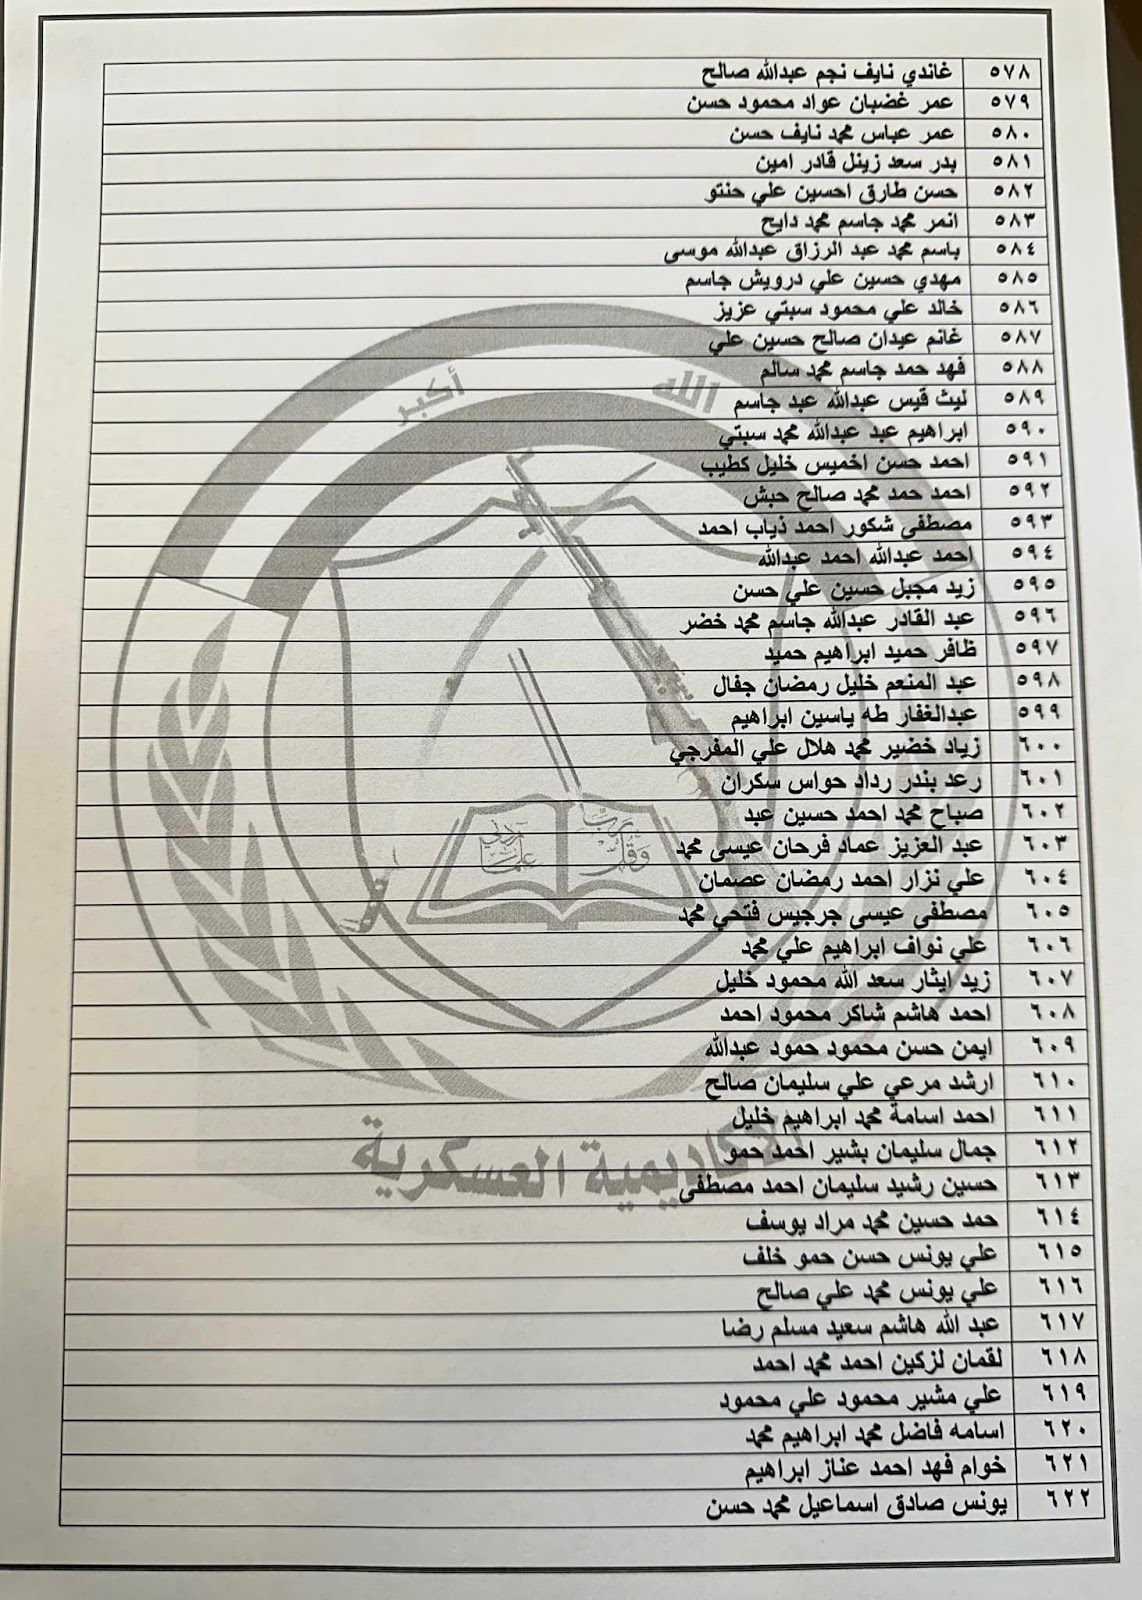 ٥٧٨ غاندي نايف نجم عبدالله صالح
٥٧٩ عمر غضبان عواد محمود حسن
٥٨٠ عمر عباس محمد نايف حسن
٥٨١ بدر سعد زينل قادر امين
٥٨٢ حسن طارق احسين علي حنتو
٥٨٣ انمر محمد جاسم محمد دايح
٥٨٤ باسم محمد عبد الرزاق عبدالله موسى
٥٨٥ مهدي حسين علي درويش جاسم
٥٨٦ خالد علي محمود سبتي عزيز
٥٨٧ غانم عيدان صالح حسين علي
٥٨٨ فهد حمد جاسم محمد سالم
٥٨٩ ليث قيس عبدالله عبد جاسم
٥٩٠ ابراهيم عبد عبدالله محمد سبتي
٥٩١ احمد حسن اخميس خليل كطيب
٥٩٢ احمد حمد محمد صالح حبش
٥٩٣ مصطفى شكور احمد ذياب احمد
٥٩٤ احمد عبدالله احمد عبدالله
٥٩٥ زيد مجبل حسين علي حسن
٥٩٦ عبد القادر عبدالله جاسم محمد خضر
٥٩٧ ظافر حميد ابراهيم حميد
٥٩٨ عبد المنعم خليل رمضان جفال
٥٩٩ عبدالغفار طه ياسين ابراهيم
٦٠٠ زياد خضير محمد هلال علي المفرجي
٦٠١ رعد بندر رداد حواس سكران
٦٠٢ صباح محمد احمد حسين عبد
٦٠٣ عبد العزيز عماد فرحان عيسى محمد
٦٠٤ علي نزار احمد رمضان عصمان
٦٠٥ مصطفى عيسى جرجيس فتحي محمد
٦٠٦ علي نواف ابراهيم علي محمد
٦٠٧ زيد ايثار سعد الله محمود خليل
٦٠٨ احمد هاشم شاكر محمود احمد
٦٠٩ ايمن حسن محمود حمود عبدالله
٦١٠ ارشد مرعي علي سليمان صالح
٦١١ احمد اسامة محمد ابراهيم خليل
٦١٢ جمال سليمان بشير احمد حمو
٦١٣ حسين رشيد سليمان احمد مصطفى
٦١٤ حمد حسين محمد مراد يوسف
٦١٥ علي يونس حسن حمو خلف
٦١٦ علي يونس محمد علي صالح
٦١٧ عبد الله هاشم سعيد مسلم رضا
٦١٨ لقمان لزكين احمد محمد احمد
٦١٩ علي مشير محمود علي محمود
٦٢٠ اسامه فاضل محمد ابراهيم محمد
٦٢١ خوام فهد احمد عناز ابراهيم
٦٢٢ يونس صادق اسماعيل محمد حسن
الله أكبر
وقل رب زدني علما
الاكاديمية العسكرية